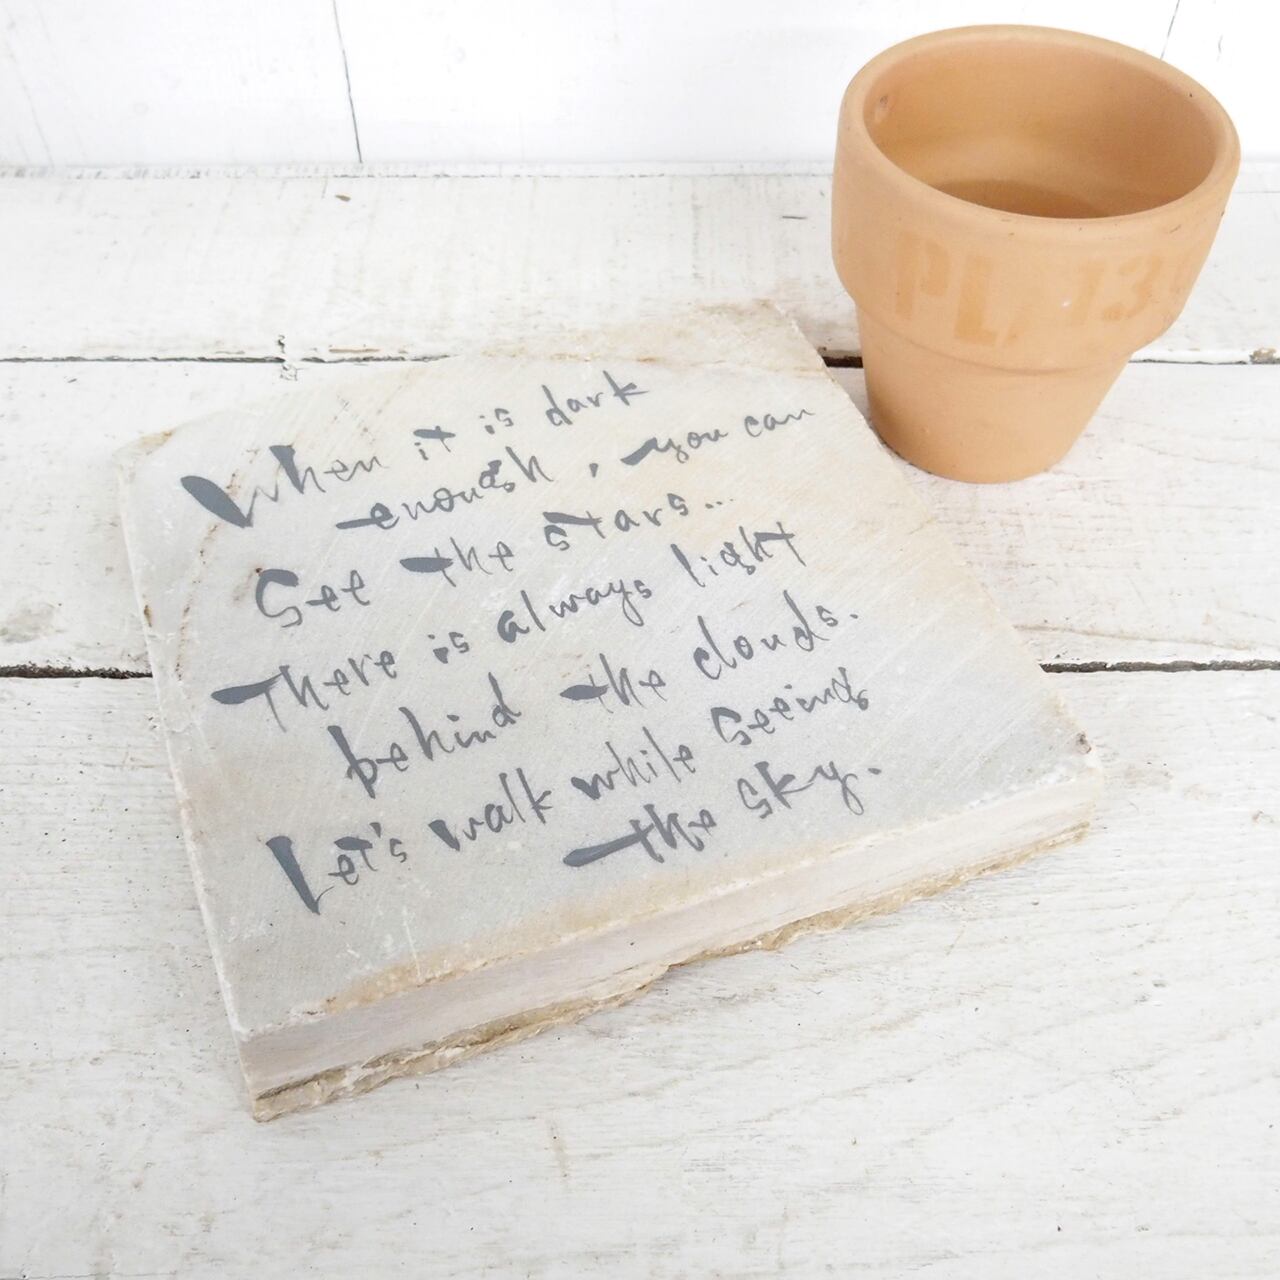 When it is dark
enough, you can
See the stars...
There is always light
behind the clouds.
Let's walk while seeing
the sky.
PL 139